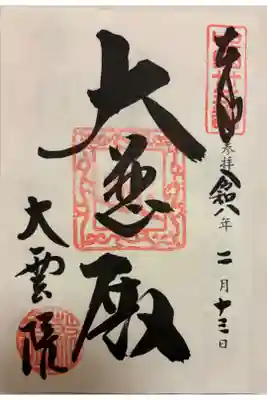 奉
参拝
令和八年 二月十三日
大悲殿
大雲院